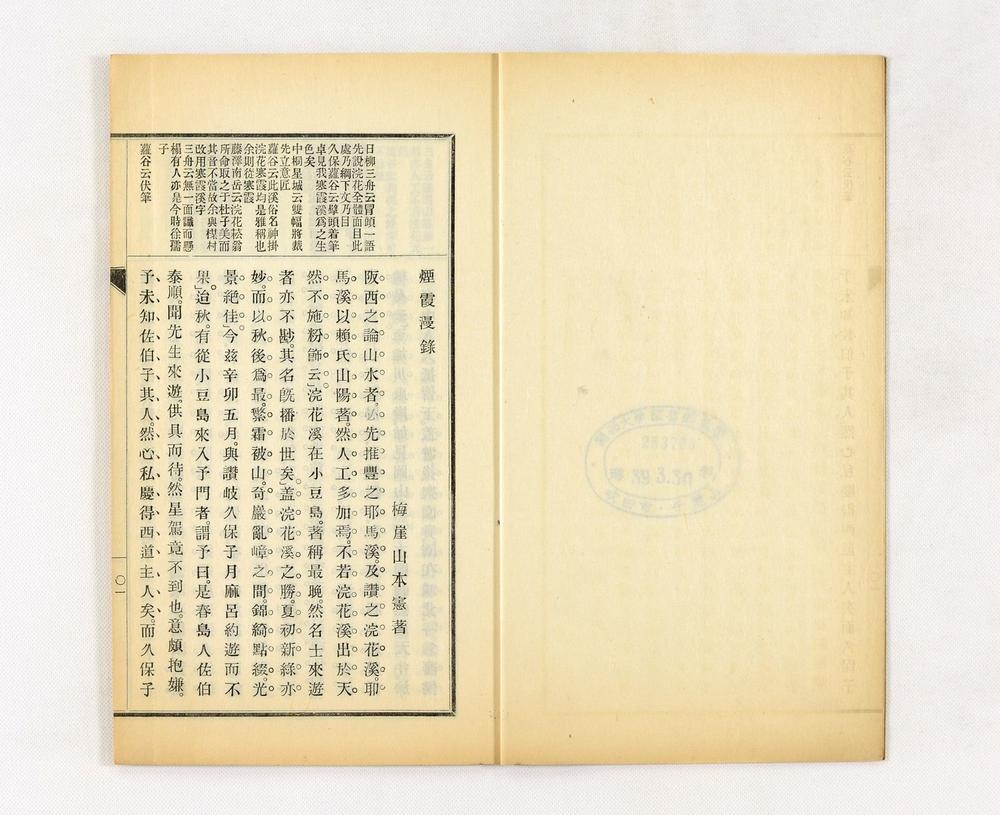 煙霞漫錄
梅崖山本憲著
阪西之論山水者。必先推豐之耶馬溪。及讚之浣花溪。耶
馬溪以賴氏山陽著。然人工多加焉。不若浣花溪出於天
然。不施粉飾云」浣花溪在小豆島。著稱最晚。然名士來遊
者亦不尠。其名旣播於世矣」蓋浣花溪之勝。夏初新綠亦
妙。而以秋後爲最。繁霜被山。奇巖亂嶂之間。錦綺點綴。光
景絕佳」今玆辛卯五月。與讚岐久保子月麻呂約遊而不
果」迨秋。有從小豆島來入予門者。謂予曰。是春島人佐伯
泰順。聞先生來遊。供具而待。然星駕竟不到也。意頗抱嫌。
予未知佐伯子其人。然心私慶得西道主人矣。而久保子
日柳三舟云冒頭一語
先說浣花全體面目此
處乃綱下文乃目
久保蘿谷云劈頭着筆
卓見我寒霞溪爲之生
色矣
中桐星城云雙幅將裁
先立意匠
蘿谷云此溪俗名神掛
浣花寒霞均是雅稱也
余則從寒霞
藤澤南岳云浣花菘翁
所命取之于杜子美而
其音不當故余與樫村
改用寒霞溪字
三舟云無一面識而懸
榻有人亦是今時徐孺
子
蘿谷云伏筆
〇一
39.3.30